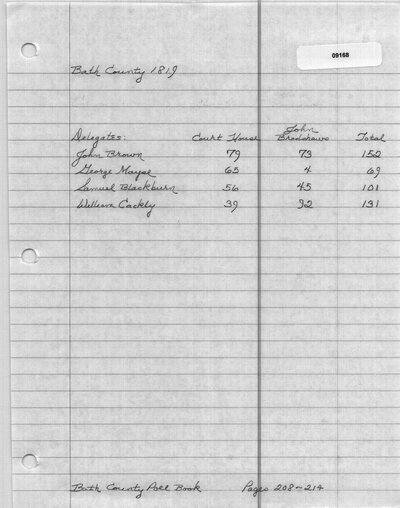 09168
Bath County 1819
Delegates: Court House John Bradshaws Total
John Brown 79 73 152
George Mayse 65 4 69
Samuel Blackburn 56 45 101
William Cackly 39 92 131
Bath County Poll Book Pages 208-214